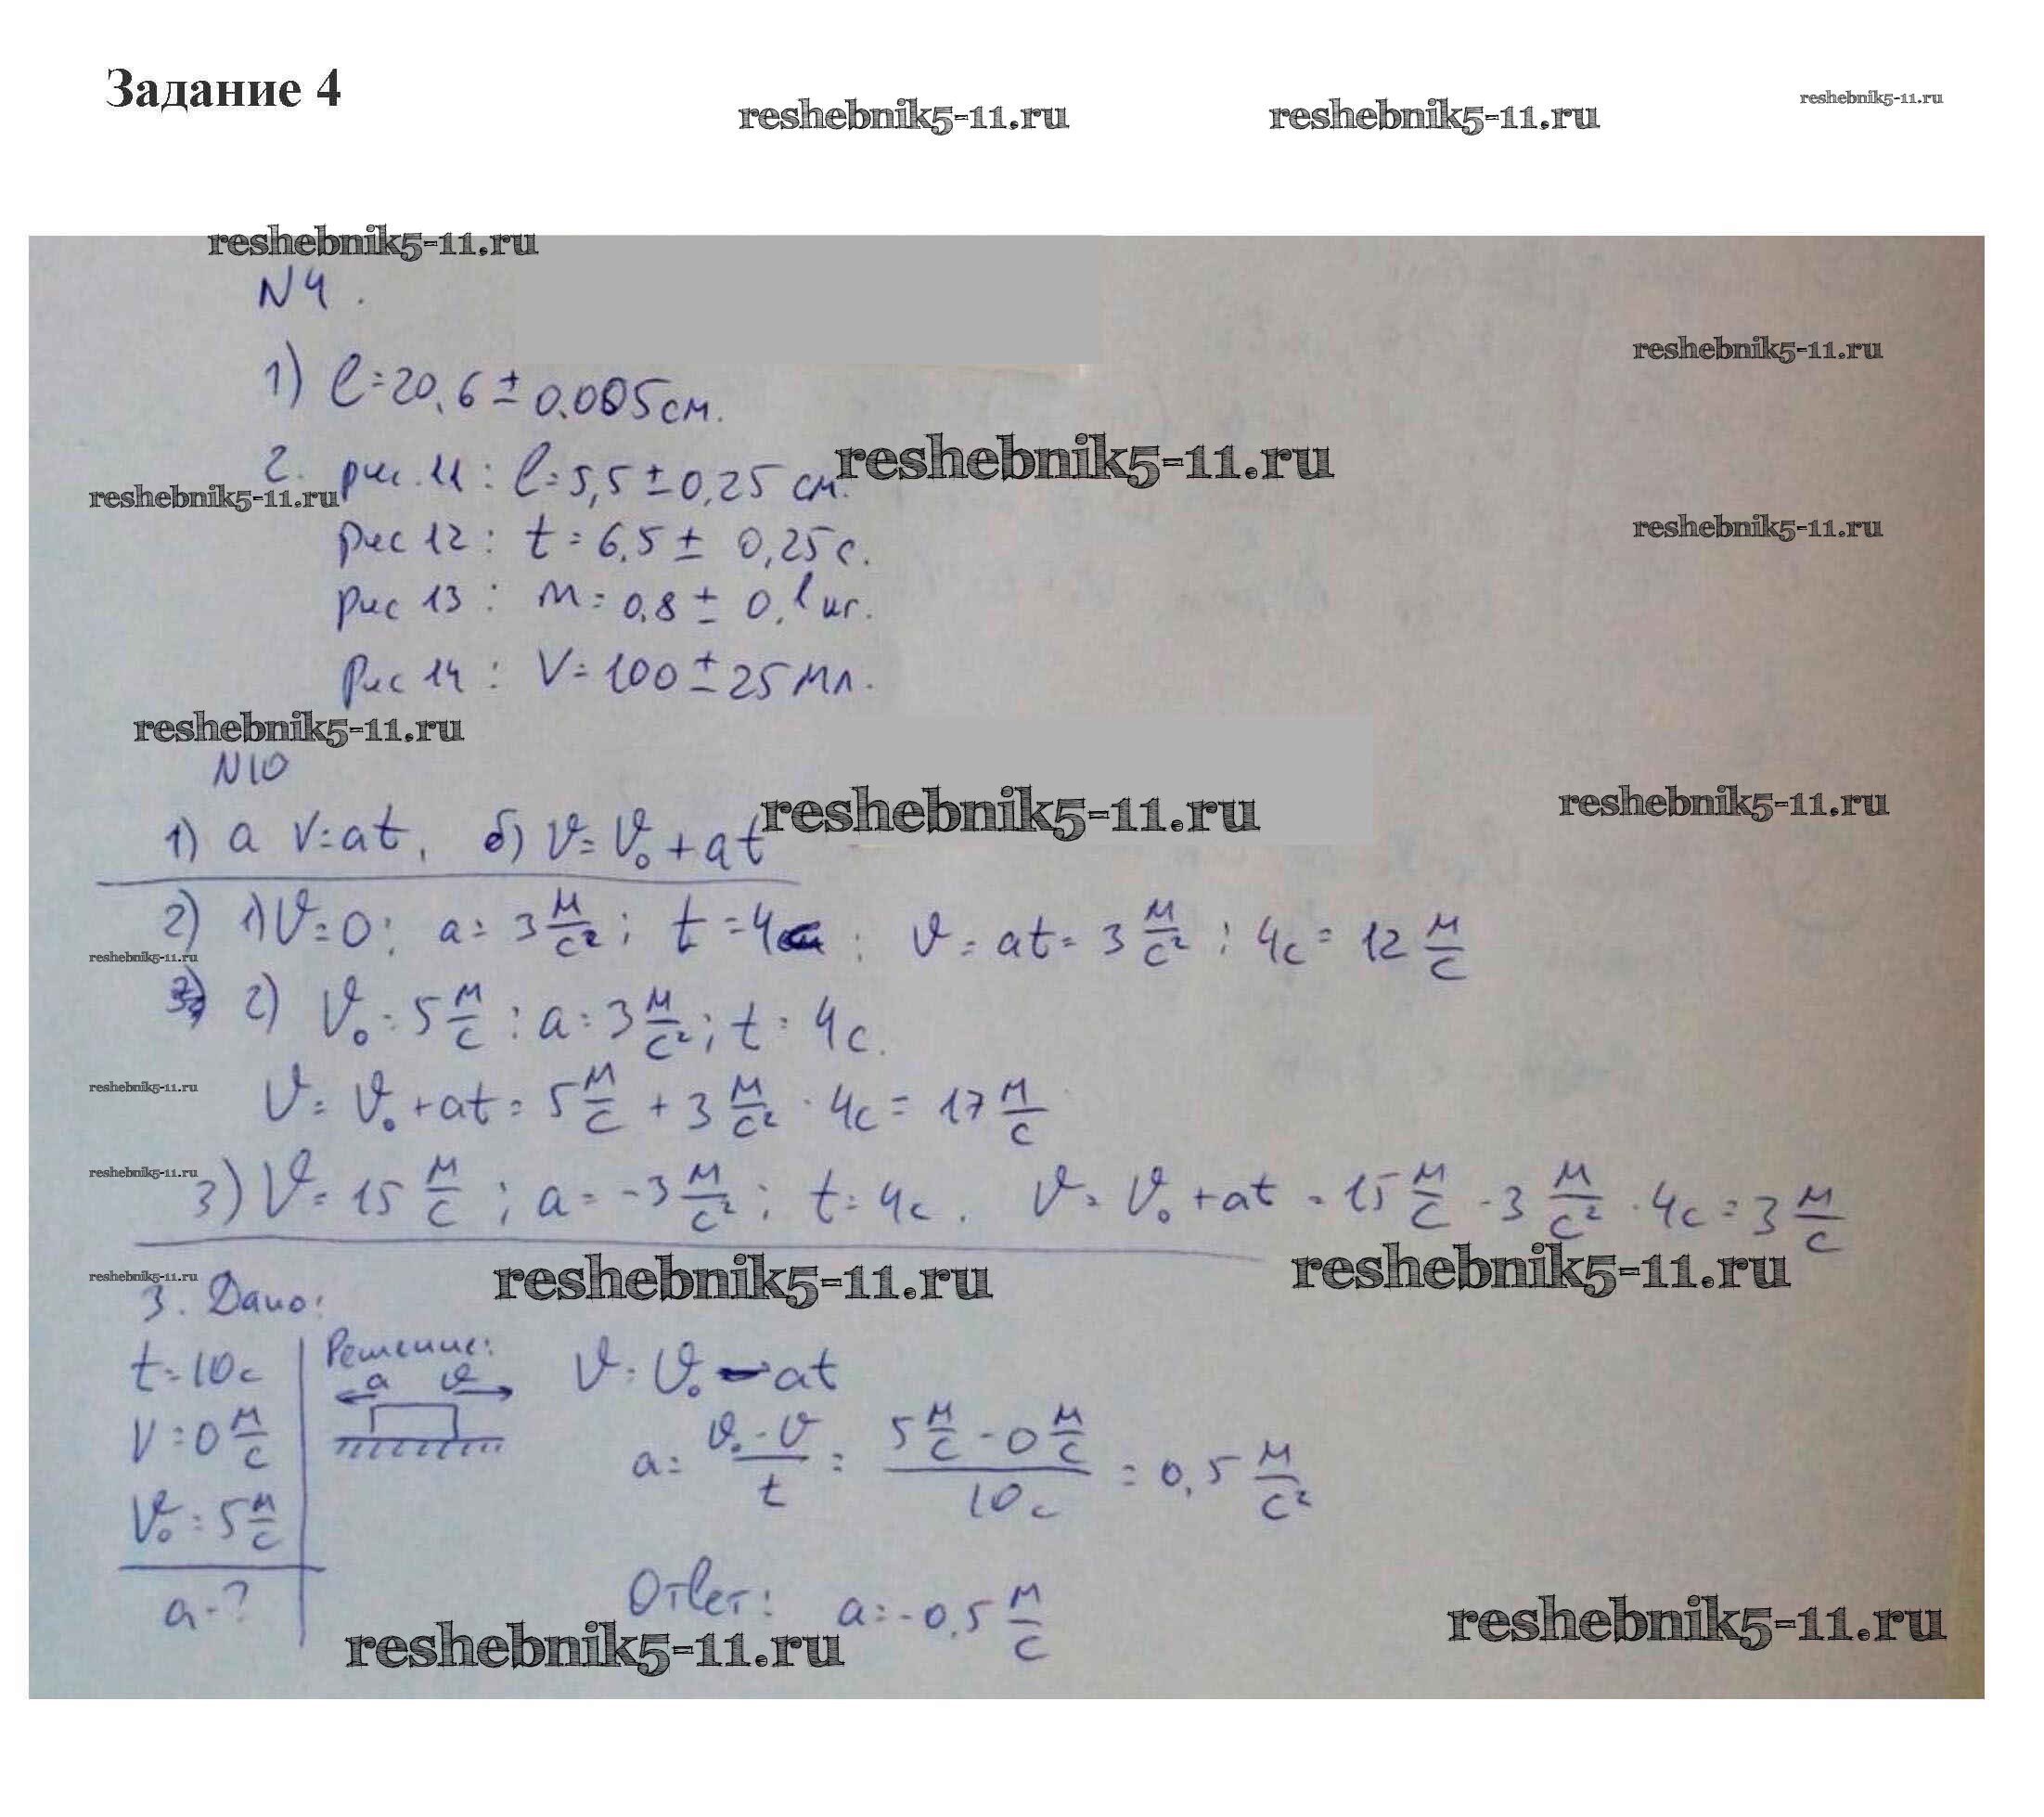 Задание 4
reshebnik5-11.ru reshebnik5-11.ru reshebnik5-11.ru
reshebnik5-11.ru
N4.
reshebnik5-11.ru
1) l=20,6 ± 0,005 см.
reshebnik5-11.ru
2. рис.11: l=5,5 ± 0,25 см.
reshebnik5-11.ru
reshebnik5-11.ru
рис 12: t = 6,5 ± 0,25 с.
рис 13: m = 0,8 ± 0,1 кг.
Рис 14: V = 100 ± 25 мл.
reshebnik5-11.ru
N10
reshebnik5-11.ru reshebnik5-11.ru
1) а v=at, б) v=v₀+at
2) 1) v=0; a=3 м/с²; t=4 ; v=at=3 м/с² ; 4с = 12 м/с
reshebnik5-11.ru
2) v₀=5 м/с; a=3 м/с²; t=4с.
reshebnik5-11.ru
v=v₀+at=5 м/с + 3 м/с² · 4с = 17 м/с
reshebnik5-11.ru
3) v=15 м/с; a=-3 м/с²; t=4с. v=v₀+at=15 м/с - 3 м/с² · 4с = 3 м/с
reshebnik5-11.ru reshebnik5-11.ru reshebnik5-11.ru
3. Дано:
t=10с
V=0 м/с
v₀=5 м/с
a-?
Решение:
a v
v=v₀-at
a= v₀-v / t = 5 м/с - 0 м/с / 10с = 0,5 м/с²
Ответ: a=-0,5 м/с
reshebnik5-11.ru reshebnik5-11.ru